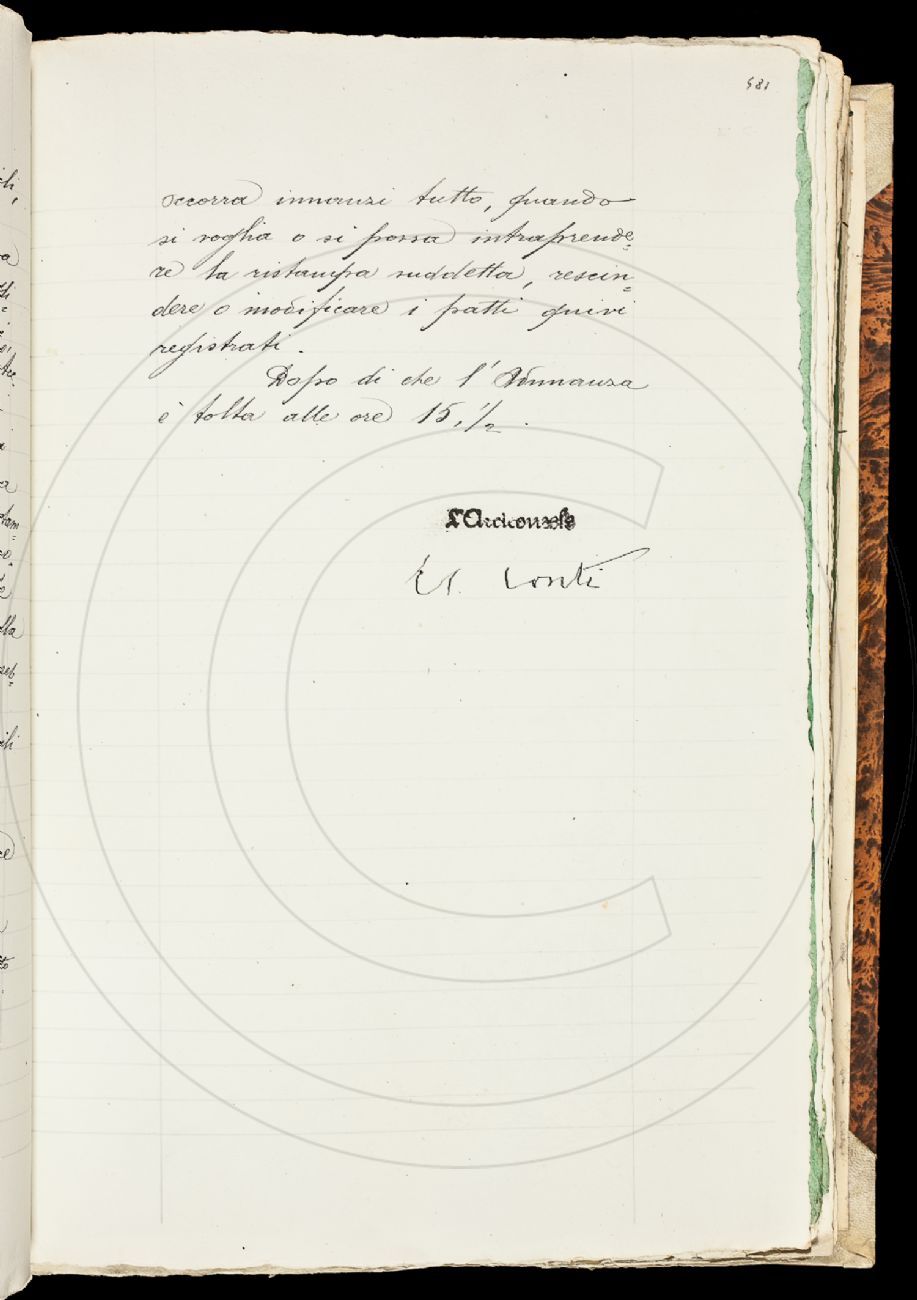 581
occorra innanzi tutto, quando
si voglia o si possa intraprende=
re la ristampa suddetta, rescin=
dere o modificare i patti quivi
registrati.
Dopo di che l'Adunanza
è tolta alle ore 15, 1/2.
L'Arciconsolo
Conti